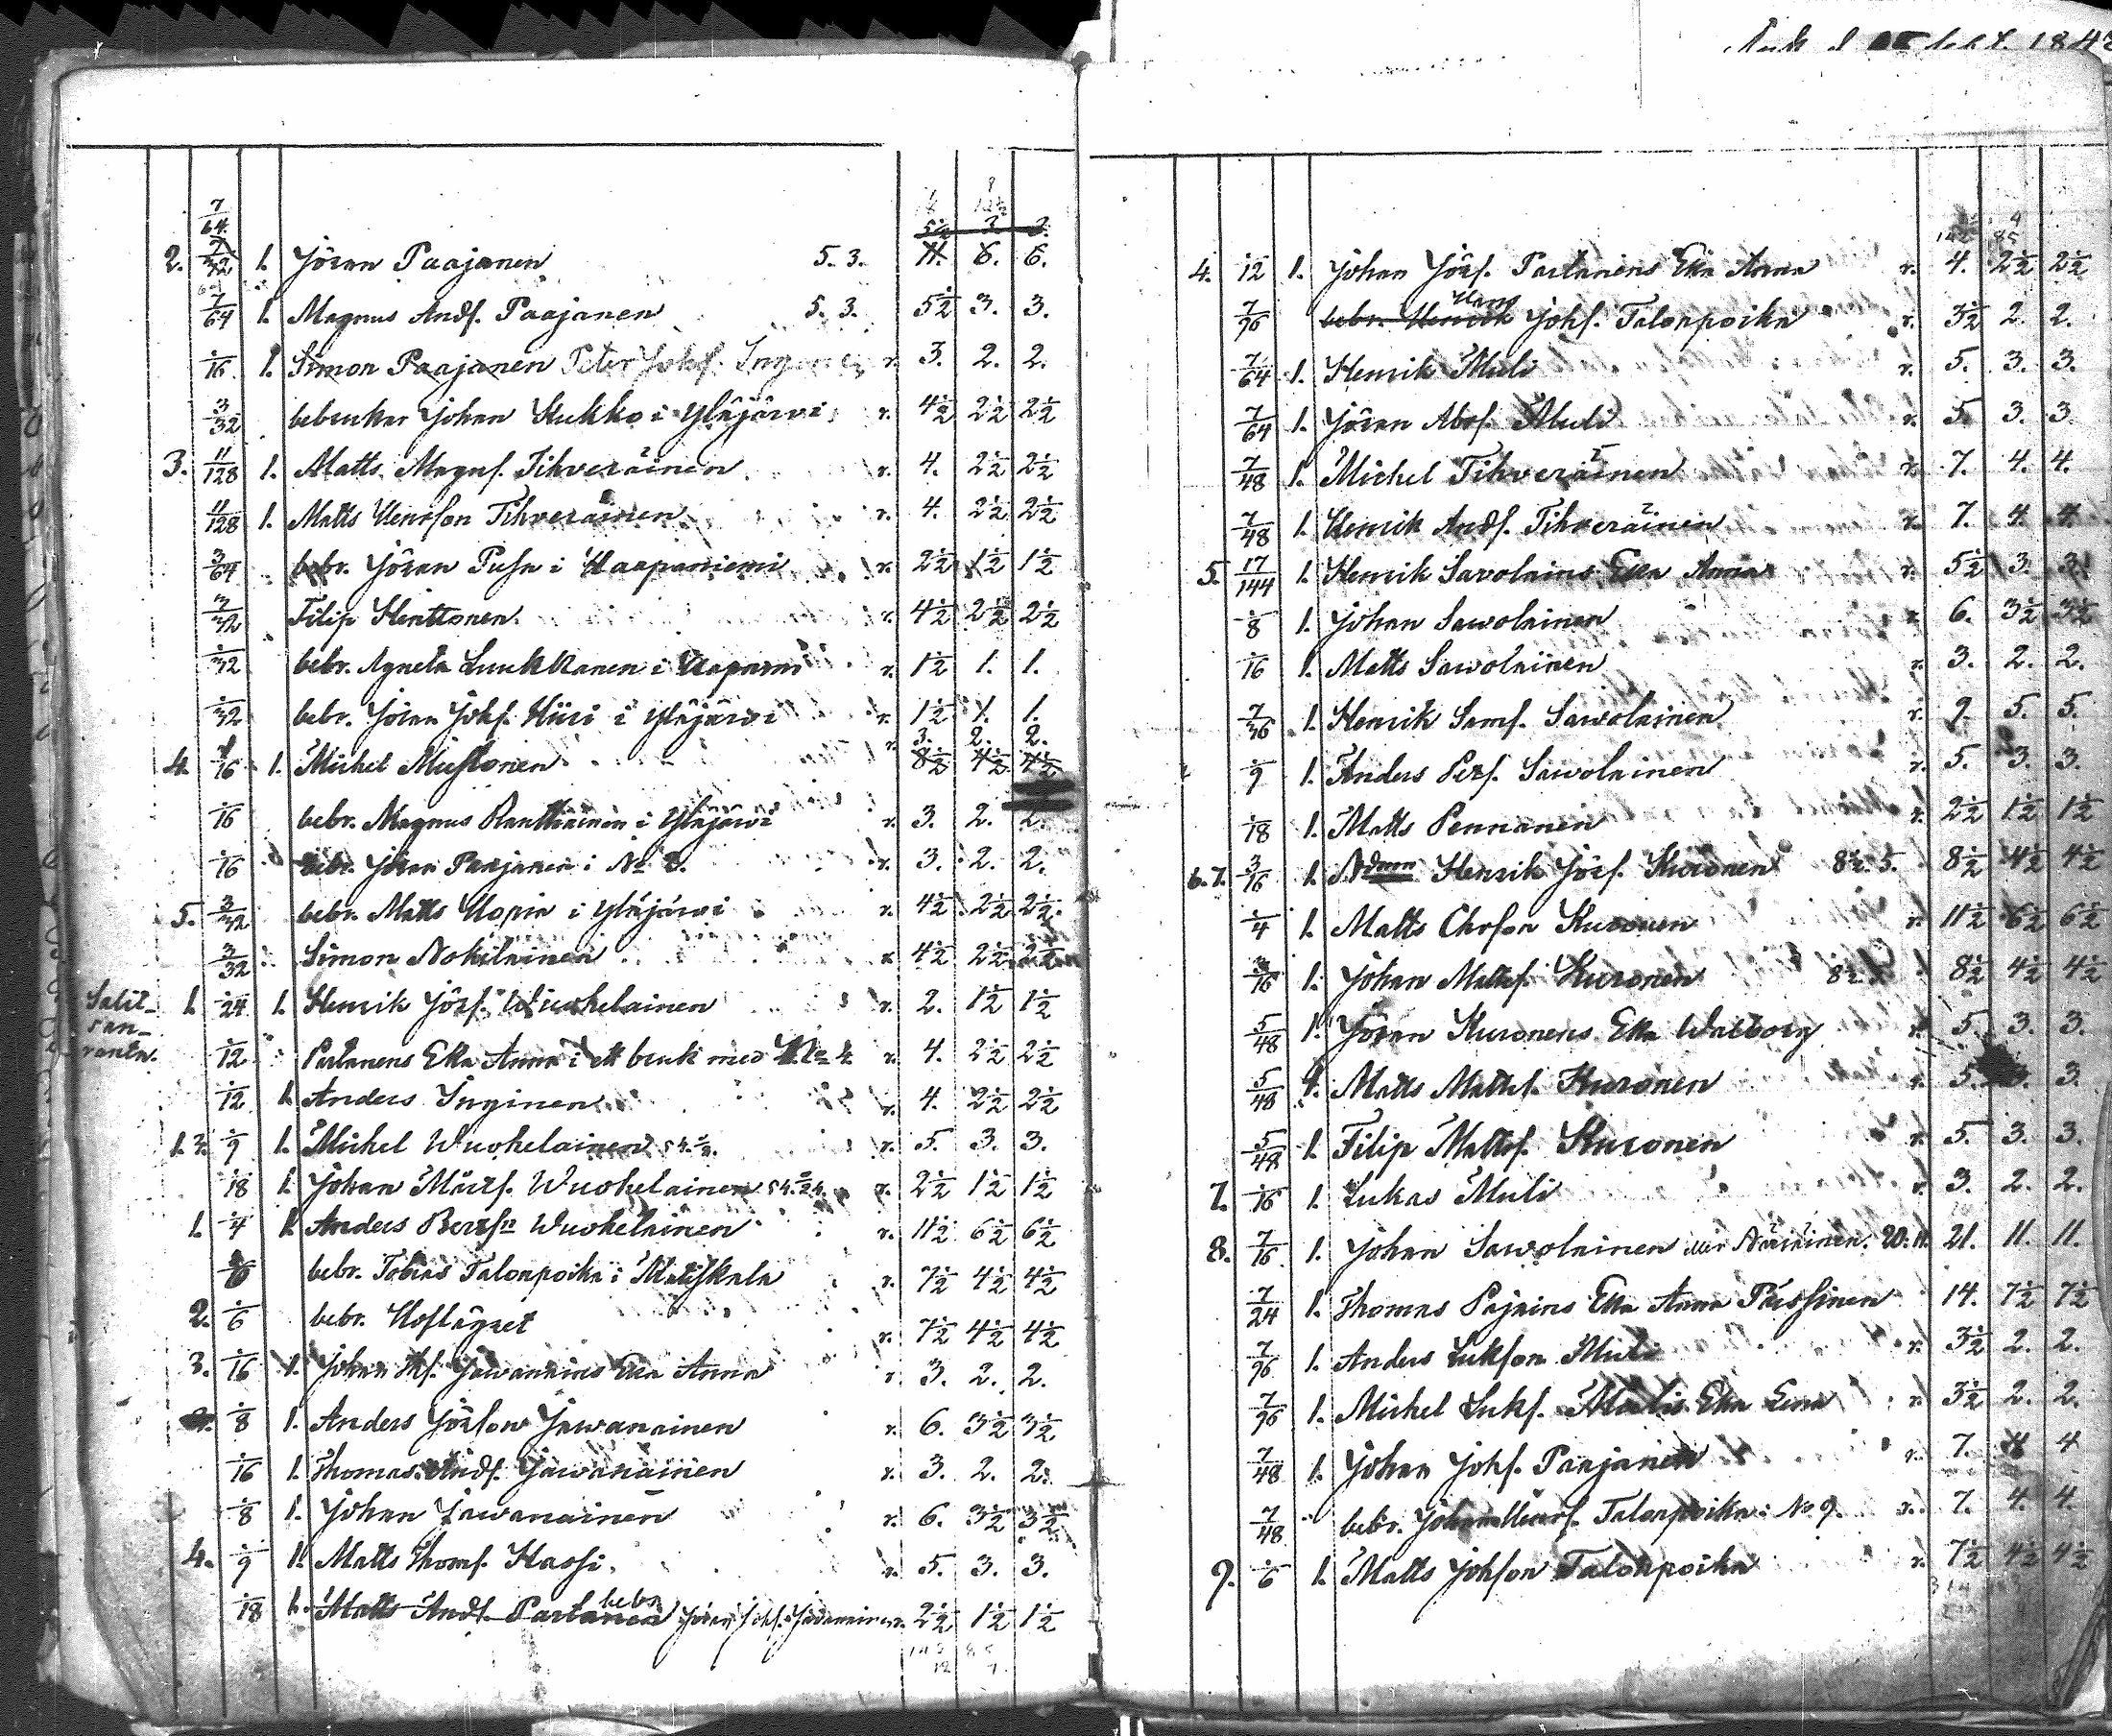 7/64
2. 7/32 1. Jöran Paajanen 5. 3. 11. 6. 6.
7/64 1. Magnus Andſ. Paajanen 5. 3. 5½ 3. 3.
1/16 1. Simon Paajanen Peter Johſ. r. 3. 2. 2.
3/32 bebrukar Johan Kukko i Yläjärvi r. 4½ 2½ 2½
3. 11/128 1. Matts Magnſ. Tihveräinen r. 4. 2½ 2½
11/128 1. Matts Henrſon Tihveräinen r. 4. 2½ 2½
3/64 bebr. Jöran Puſa i Haapaniemi r. 2½ 1½ 1½
3/32 Filip Henttonen r. 4½ 2½ 2½
1/32 bebr. Agneta Luukkanen i r. 1½ 1. 1.
1/32 bebr. Jöran Johſ. Hiiri i Yläjärvi r. 1½ 1. 1.
r. 3. 2. 2.
4. 1/16 1. Michel Muſtonen 8½ 4½ 4½
1/16 bebr. Magnus i Yläjärvi r. 3. 2. 2.
1/16 bebr. Jöran Paajanen i No 2. r. 3. 2. 2.
5. 3/32 bebr. Matts Uopia i Yläjärvi r. 4½ 2½ 2½
3/32 Simon Nokilainen r. 4½ 2½ 2½
Salit-
san-
ranta.
1. 1/24 1. Henrik Jörſ. Wuohelainen r. 2. 1½ 1½
1/12 Partanens Eka Anna i ett bruk med No 4 r. 4. 2½ 2½
1/12 1. Anders Inginen r. 4. 2½ 2½
1. 2. 1/9 1. Michel Wuohelainen r. 5. 3. 3.
1/18 1. Johan Mårt. Wuohelainen r. 2½ 1½ 1½
1. 1/4 1. Anders Berſn Wuohelainen r. 11½ 6½ 6½
1/6 bebr. Tobias Talonpoika i r. 7½ 4½ 4½
2. 1/6 bebr. Hoflägret r. 7½ 4½ 4½
3. 1/16 1. Johan Jawanains Eka Anna r. 3. 2. 2.
1/8 1. Anders Jörſon Jawanainen r. 6. 3½ 3½
1/16 1. Thomas Andſ. Jawanainen r. 3. 2. 2.
1/8 1. Johan Jawanainen r. 6. 3½ 3½
4. 1/9 1. Matts Thomſ. Hassi r. 5. 3. 3.
1/18 1. Matts Andſ. Partanen bebr. Jöran Johſ. Jawanainen r. 2½ 1½ 1½
1842
4. 1/12 1. Johan Jörſ. Partanens Eka Anna r. 4. 2½ 2½
7/96 bebr. Henrik Hans Johſ. Talonpoika r. 3½ 2. 2.
7/64 1. Henrik Muli r. 5. 3. 3.
7/64 1. Jöran Abrſ. Muli r. 5. 3. 3.
7/48 1. Michel Tihveräinen r. 7. 4. 4.
7/48 1. Henrik Andſ. Tihveräinen r. 7. 4. 4.
5. 17/144 1. Henrik Savolains Eka Anna r. 5½ 3. 3.
1/8 1. Johan Sawolainen r. 6. 3½ 3½
1/16 1. Matts Sawolainen r. 3. 2. 2.
7/36 1. Henrik Samſ. Sawolainen r. 9. 5. 5.
1/9 1. Anders Perſ. Sawolainen r. 5. 3. 3.
1/18 1. Matts Pennanen r. 2½ 1½ 1½
6. 7. 3/16 1. Ndmn Henrik Jörſ. Kuronen 8½. 5. 8½ 4½ 4½
1/4 1. Matts Chrſon Kuronen r. 11½ 6½ 6½
3/16 1. Johan Mattſ. Kuronen 8½ 8½ 4½ 4½
5/48 1. Jöran Kuronens Eka Walborg r. 5. 3. 3.
5/48 1. Matts Mattſ. Kuronen r. 5. 3. 3.
5/48 1. Filip Mattſ. Kuronen r. 5. 3. 3.
7. 1/16 1. Lukas Muli r. 3. 2. 2.
8. 7/16 1. Johan Sawolainen 20. 11. 21. 11. 11.
7/24 1. Thomas Pajains Eka Anna Päiſſinen 14. 7½ 7½
7/96 1. Anders Lukſon Muli r. 3½ 2. 2.
7/96 1. Michel Lukſ. Mulis Eka Lena r. 3½ 2. 2.
7/48 1. Johan Johſ. Paajanen r. 7. 4 4
7/48 bebr. Johan Talonpoika i No 9. r. 7. 4. 4.
9. 1/6 1. Matts Johſon Talonpoika r. 7½ 4½ 4½